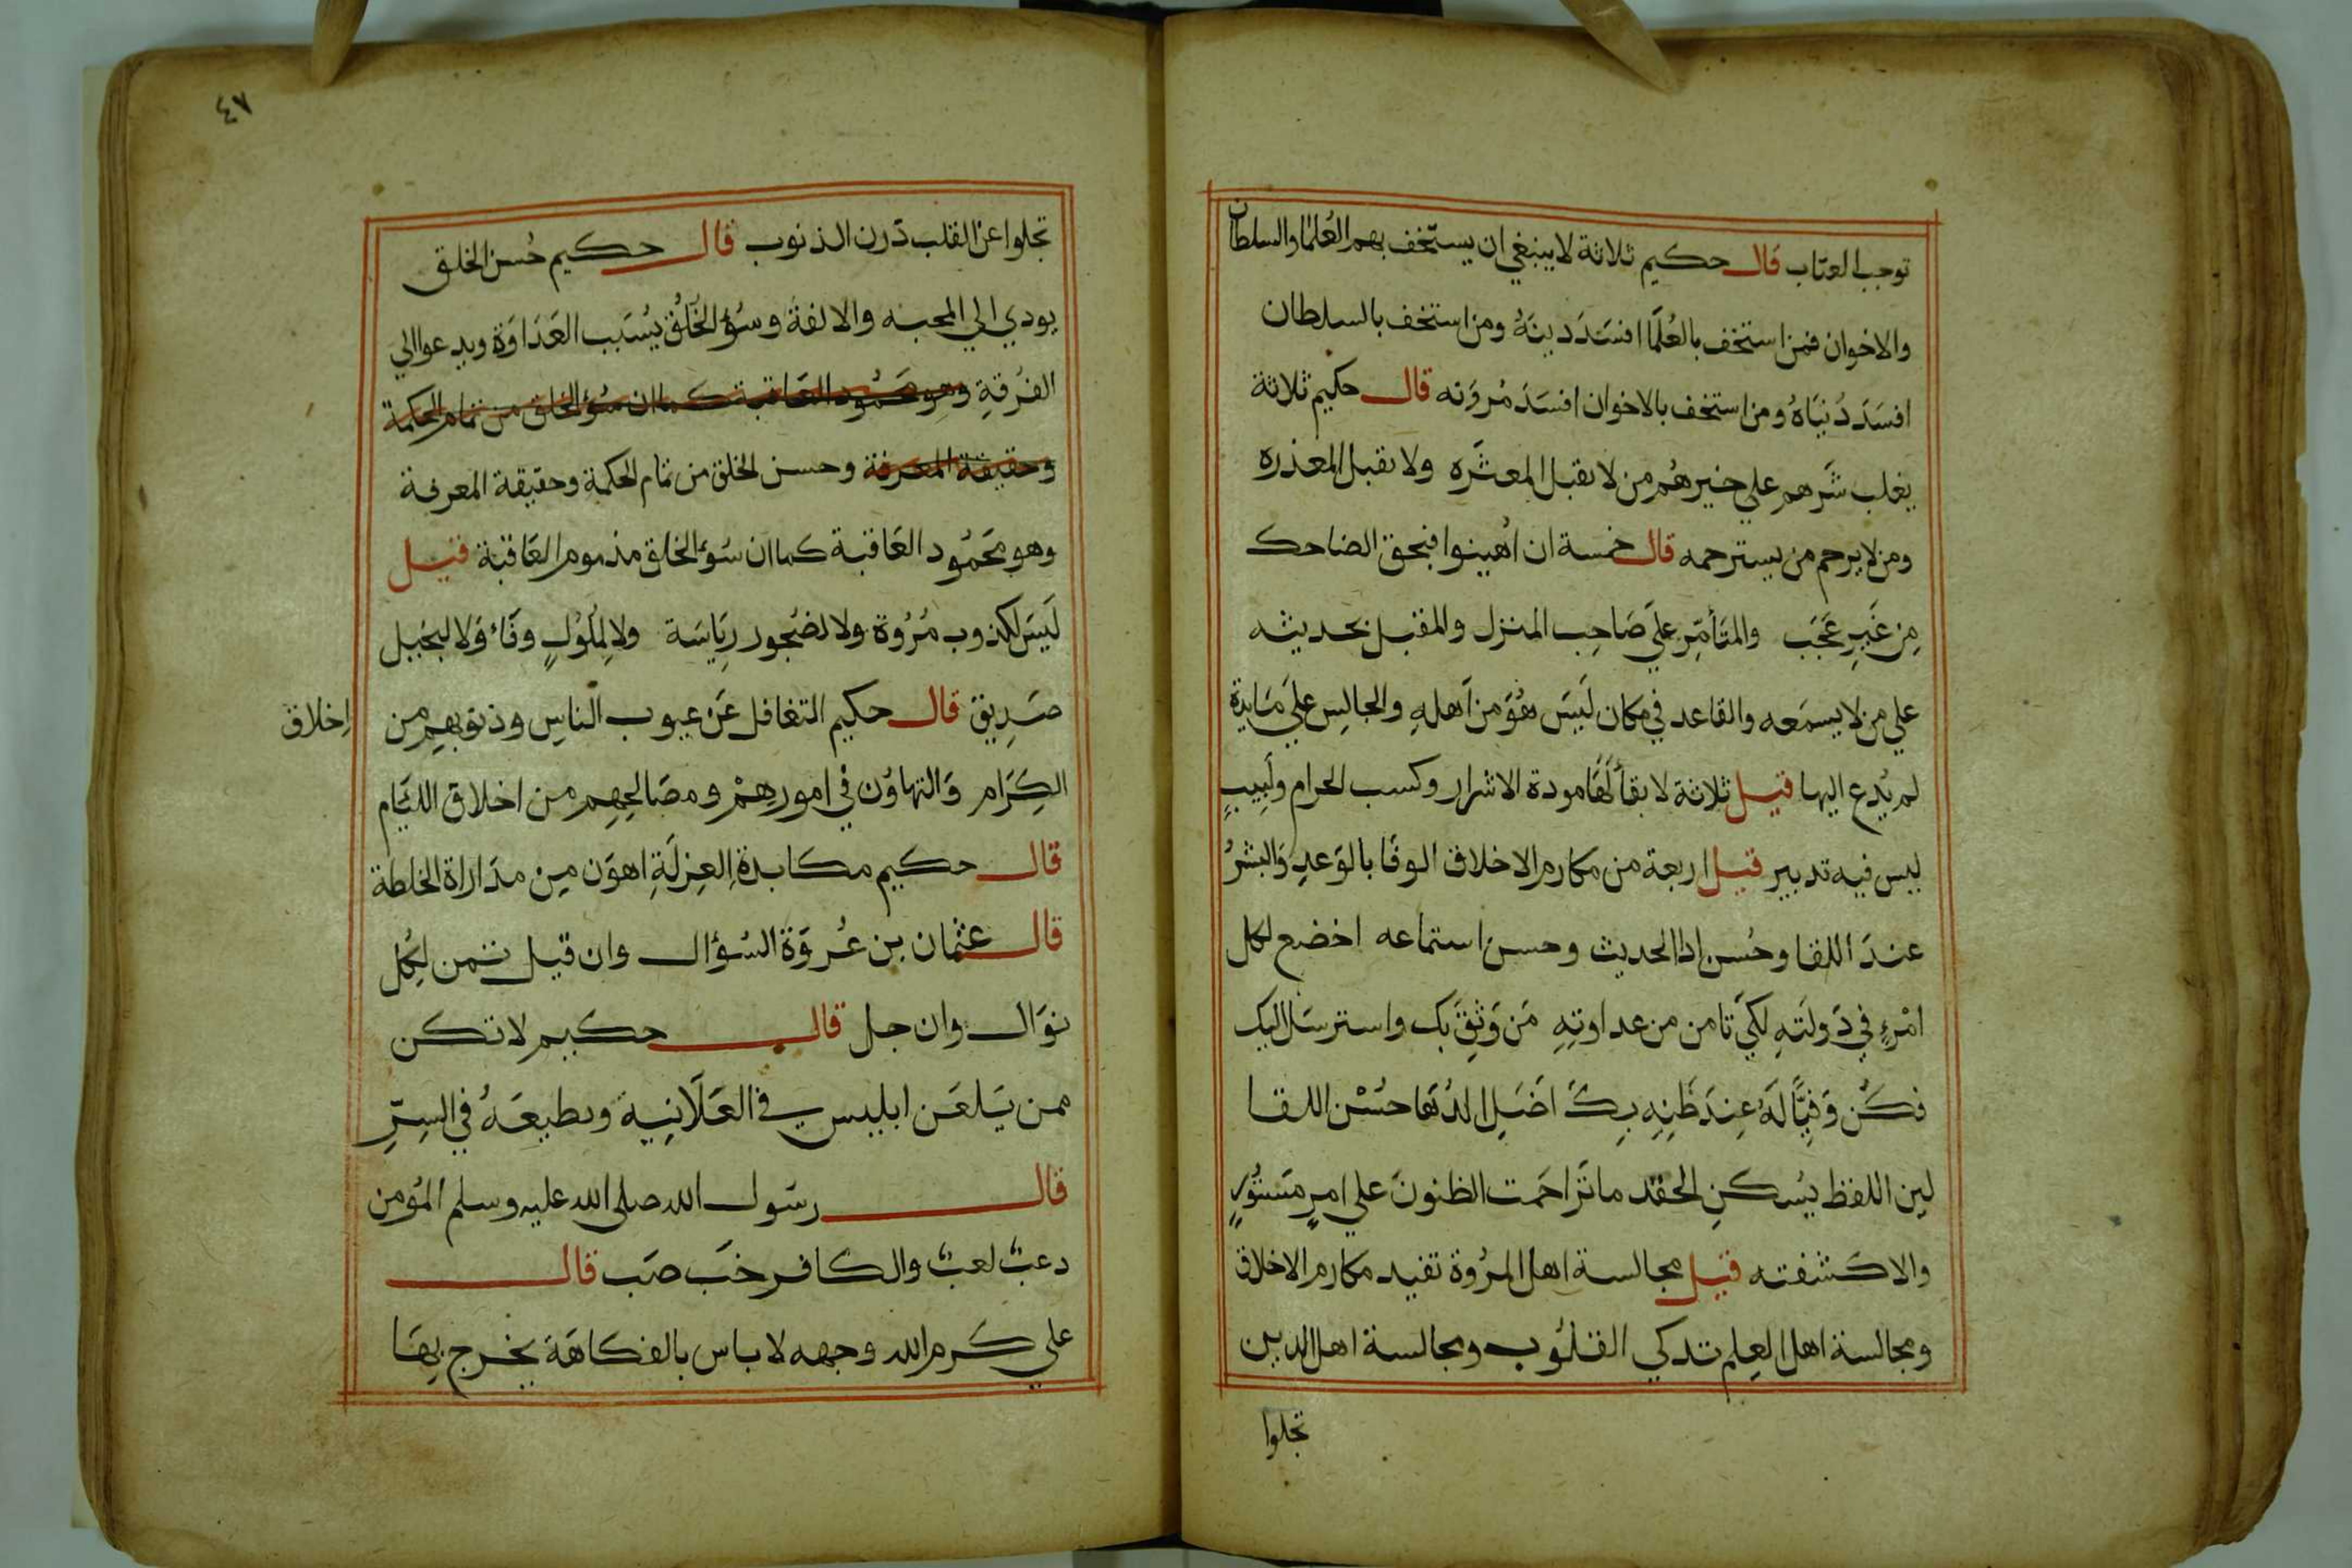 توجب العتاب قال حكيم ثلاثة لا ينبغي ان يستخف بهم العُلما والسلطان
والاخوان فمن استخف بالعُلمَا افسَدَ دينَهُ ومن استخف بالسلطان
افسَدَ دُنيَاهُ ومن استخف بالاخوان افسَدَ مُروَته قال حكيم ثلاثة
يغلب شَرهم علي خيرهُم من لا يقبل المعثَره ولا يقبل المعذره
ومن لا يرحم من يسترحمه قال خمسة ان اُهينوا فبحق الضاحك
مِن غَيرِ عَجَب والمتَأمّرِ علي صَاحِب المنزل والمقبل بحديثه
علي من لا يسمَعه والقاعد في مكان لَيسَ هُوَ من اَهلهِ والجالِس علي مَايدة
لم يُدع اليها قيل ثلاثة لا بقاَ لَهَا مودة الاشرار وكسب الحرام ولَبِيبٍ
ليس فيه تدبير قيل اربعة من مكارم الاخلاق الوفَا بالوَعدِ وَالبشرُ
عندَ اللقا وحُسن ادا الحديث وحسن استماعه اخضع لكل
امْرءٍ في دَولَتهِ لكَي تامن من عداوتِهِ مَن وَثِقَ بك واسترسَل اليك
فكُن وَفيًّا لَهُ عِندَ ظَنِهِ بِكَ
حُسْن اللقا
لين اللفظ يُسكن الحقد ما تَزَاحَمت الظنونَ علي امرٍ مَستُورٍ
والا كشفته قيل مجالسة اهل المرُوة تفيد مكارم الاخلاق
ومجالسة اهل العِلم تدكي القلوب ومجالسة اهل الدين
تجلوا
٤٧
تجلوا عن القلب دَرن الذنوب قال حكيم حُسن الخلق
يودي الي المحبه والالفة وسُؤ الخُلُق يُسَبب العَدَاوَة ويدعوا الي
الفُرقةِ وهو مَحمُود العَاقبة كما ان سُؤ الخلق من تمام الحكمة
وحقيقة المعرفة وحسن الخلق من تمام الحكمة وحقيقة المعرفة
وهو مَحَمُود العَاقبة كما ان سُؤ الخلق مذموم العَاقبَة قيل
لَيسَ لكذوب مُرُوة ولا لضجور رِيَاسَة ولا لِملُولٍ وفَاء وَلا لبخيل
صَدِيق قال حكيم التغافل عَن عيوب الناسِ وذنوبهِم من
اِخلاق
الكِرَام وَالتهاوُن في امورهِمْ ومصَالِحِهِم من اخلاق اللئام
قال حكيم مكابدة العِزلَةِ اهوَن مِن مدَاراة الخلطة
قال عثمان بن عُروَة السُؤال وان قيل ثمن لِكُل
نوَال وان جل قال حكيم لا تكن
ممن يَلعَن ابليس في العَلَانِيَة ويطيعَهُ في السِرِّ
قال رسَول الله صلي الله عليه وسلم المُومن
دعبٌ لعبٌ والكافر خَب صَب قال
علي كرم الله وجهه لا باس بالفكاهَة يخرج بِهَا